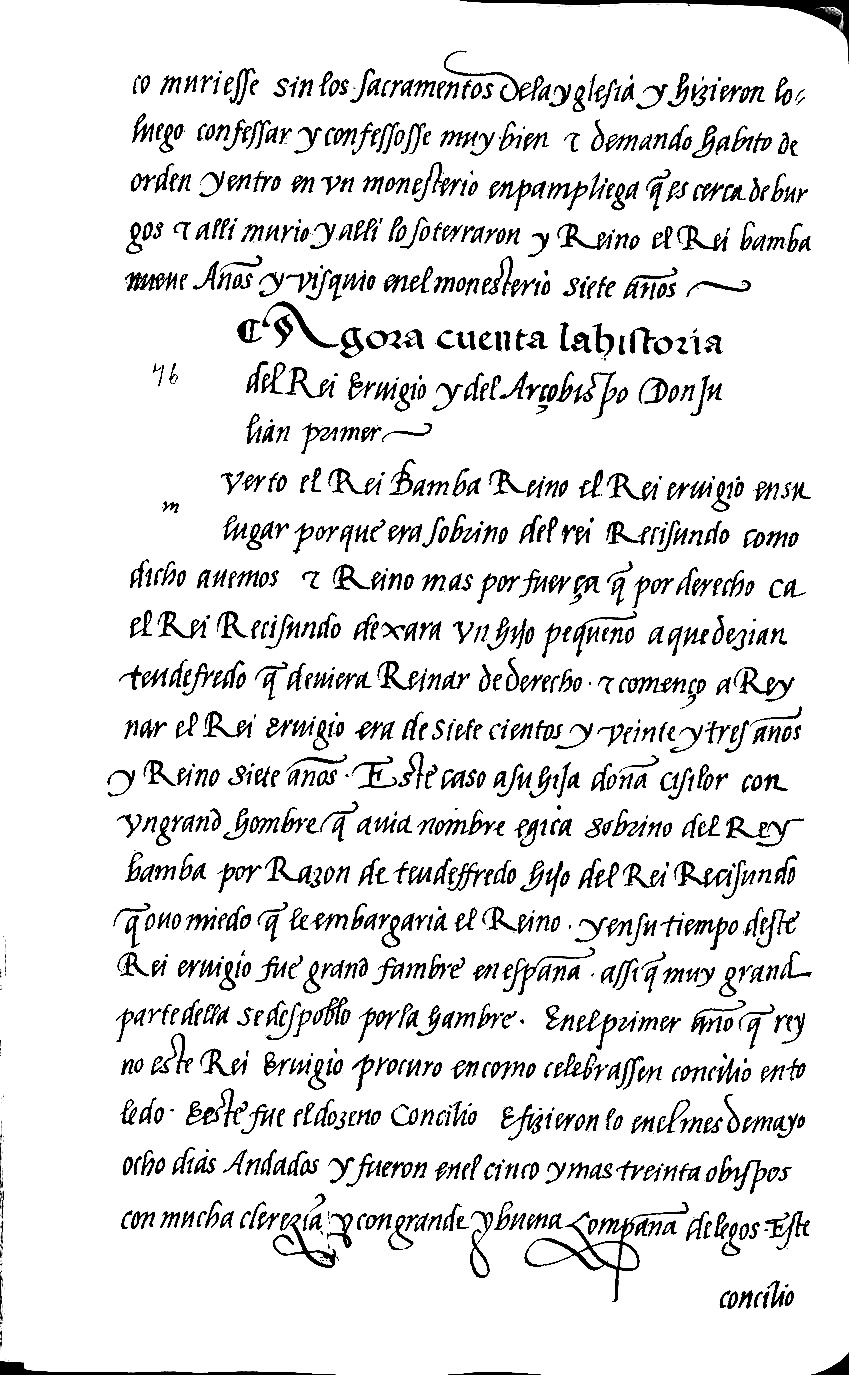 co muriesse sin los sacramentos dela yglesia y hizieron lo
luego confessar y confessosse muy bien τ demando habito de
orden y entro en vn monesterio enpampliega q̃ es cerca de bur
gos τ alli murio y alli lo soterraron y Reino el Rei bamba
nueve Años y visquio enel monesterio siete años
Agora cuenta la historia
76
del Rei Eruigio y del Arçobispo Don Ju
lian primer
verto el Rei Bamba Reino el Rei eruigio en su
m
lugar por que era sobrino del rei Recisundo como
dicho auemos τ Reino mas por fuerça q̃ por derecho ca
el Rei Recisundo dexara vn hijo pequeño a que dezian
teudefredo q̃ deuiera Reinar de derecho · τ començo a Rey
nar el Rei Eruigio era de siete cientos y veinte y tres años
y Reino siete años · Este caso a su hija doña cisilor con
vn grand hombre q̃ auia nombre egica sobrino del Rey
bamba por Razon de teudeffredo hijo del Rei Recisundo
q̃ ouo miedo q̃ le embargaria el Reino · y en su tiempo deste
Rei eruigio fue grand fambre en españa · assi q̃ muy grand
parte della se despoblo por la hambre · Enel primer año q̃ rey
no este Rei Eruigio procuro en como celebrassen concilio en to
ledo · Eeste fue el dozeno Concilio Efizieron lo enel mes de mayo
ocho dias Andados y fueron enel cinco y mas treinta obispos
con mucha clerezia y con grande y buena Compaña de legos · Este
concilio